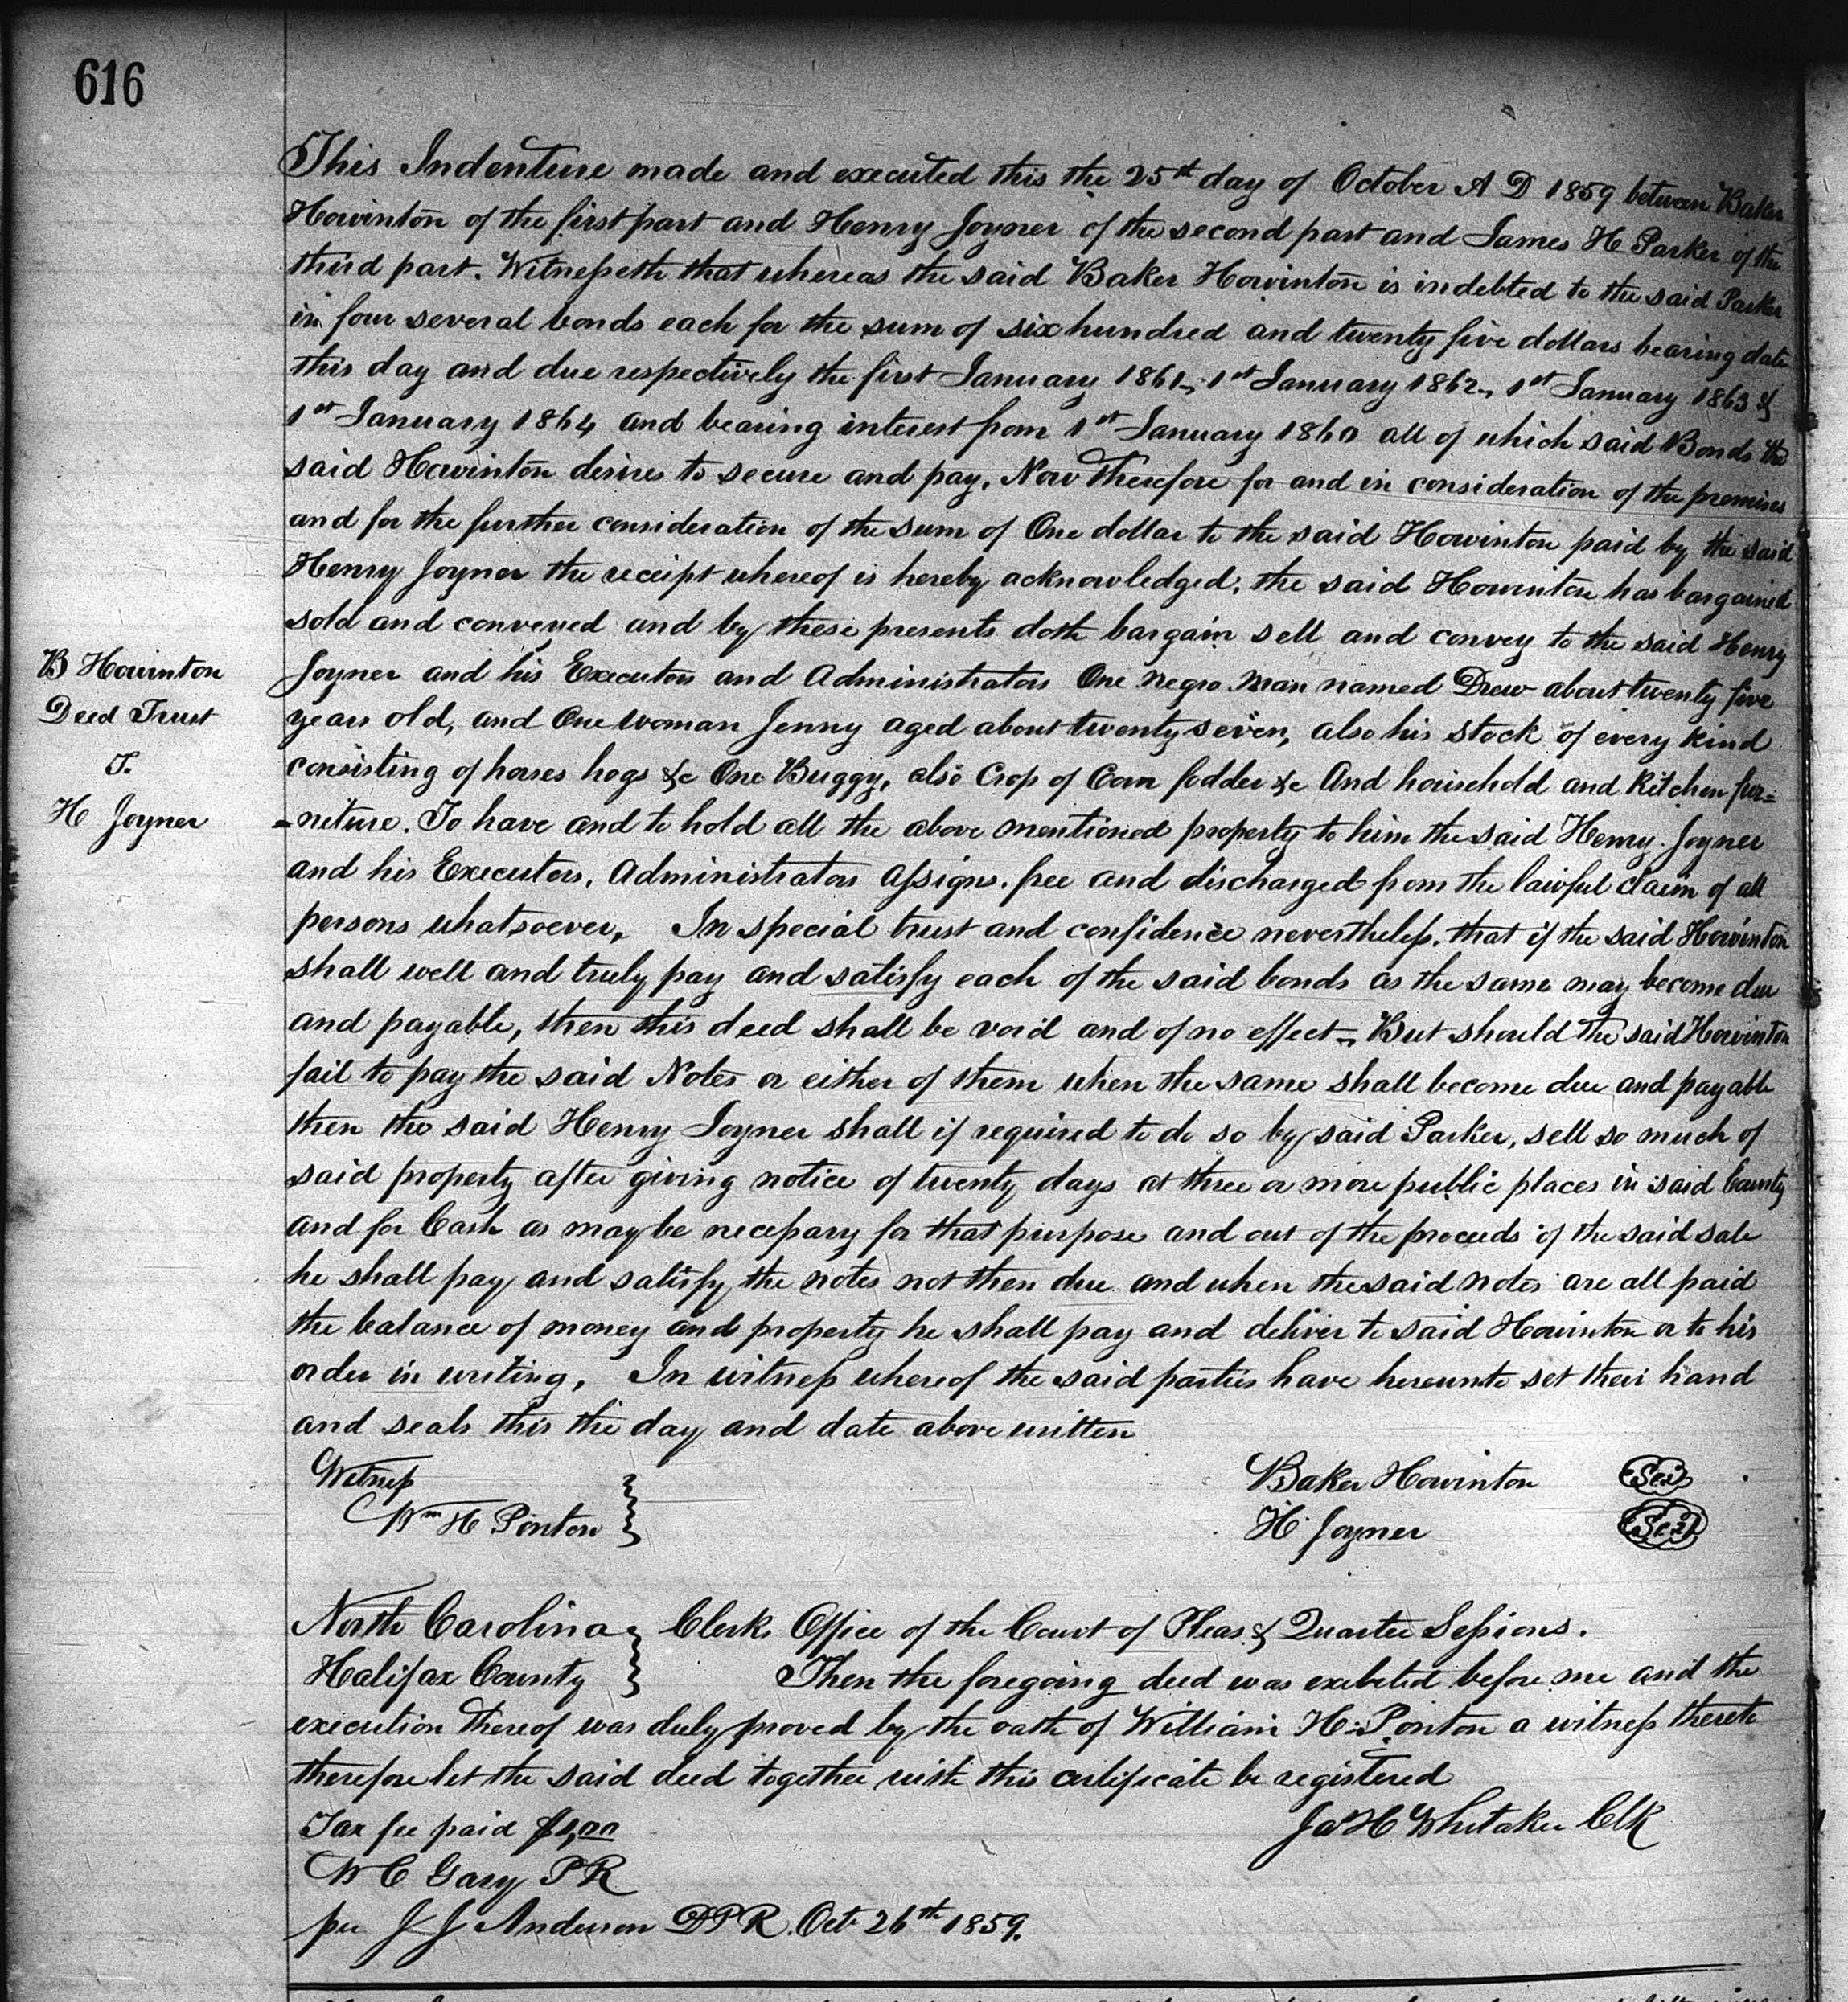 616
This Indenture made and executed this the 25st day of October A D 1859 between Baker
Howinton of the first part and Henry Joyner of the second part and James H Parker of the
third part. Witnesseth that whereas the said Baker Howinton is indebted to the said Parker
in four several bonds each for the sum of six hundred and twenty five dollars bearing date
this day and due respectively the first January 1861, 1st January 1862, 1st January 1863 &
1st January 1864 and bearing interest from 1st January 1860 all of which said Bonds the
said Howinton desires to secure and pay, Now Therefore for and in consideration of the premises
and for the further consideration of the sum of One dollar to the said Howinton paid by the said
Henry Joyner the receipt whereof is hereby acknowledged; the said Howinton has bargained
sold and conveyed and by these presents doth bargain sell and convey to the said Henry
Joyner and his Executors and Administrators One negro man named Drew about twenty five
years old, and One woman Jenny aged about twenty seven, also his stock of every kind
consisting of horses hogs &c One Buggy, also Crop of Corn fodder &c And household and Kitchen fur=
=niture. To have and to hold all the above mentioned property to him the said Henry Joyner
and his Executors, Administrators Assigns, free and discharged from the lawful claim of all
persons whatsoever, In special trust and confidence nevertheless, that if the said Howinton
shall well and truly pay and satisfy each of the said bonds as the same may become due
and payable, then this deed shall be void and of no effect - But should the said Howinton
fail to pay the said Notes or either of them when the same shall become due and payable
then the said Henry Joyner shall if required to do so by said Parker, sell so much of
said property after giving notice of twenty days at three or more public places in said County
and for Cash as may be necessary for that purpose and out of the proceeds of the said sale
he shall pay and satisfy the notes not then due and when the said notes are all paid
the balance of money and property he shall pay and deliver to said Howinton or to his
order in writing, In witness whereof the said parties have hereunto set their hand
and seals this the day and date above written
B Howinton
Deed Trust
T.
H Joyner
Witness
Wm H Ponton
Baker Howinton Seal
H. Joyner Seal
North Carolina Clerks Office of the Court of Pleas & Quarter Sessions.
Halifax County Then the foregoing deed was exebeted before me and the
execution thereof was duly proved by the oath of William H. Ponton a witness thereto
therefore let the said deed together with this certificate be registered
Tax fee paid $1,00
Ja H Whitaker Clk
W C Gary P R
per J J Anderson D P R. Oct. 26th 1859.